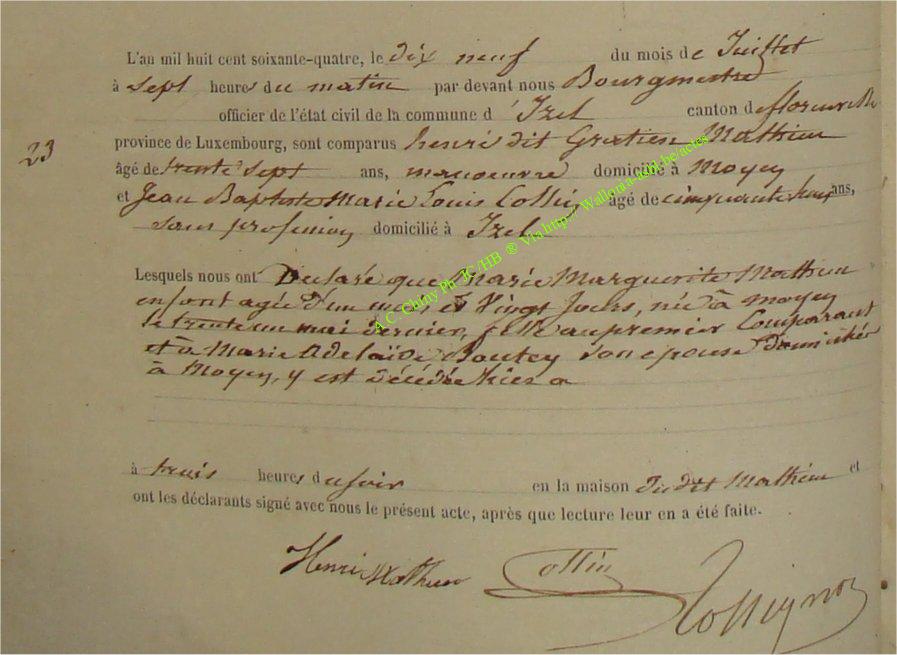 L'an mil huit cent soixante-quatre, le dix neuf du mois de Juillet
à sept heures du matin par devant nous Bourgmestre
officier de l'état civil de la commune d'Izel canton de florenville
province de Luxembourg, sont comparus henri dit Gratien Mathieu
23
âgé de trente sept ans, manoeuvre domicilié à Moyen
et Jean Baptiste Marie Louis Collin, âgé de cinquante ans,
sans profession domicilié à Izel
Lesquels nous ont Déclaré que Marie Marguerite Mathieu
enfant agée d'un mois et Vingt Jours, née à moyen
le trente un mai dernier, fille au premier Comparant
et à Marie Adelaïde Boutey son epouse domiciliés
à Moyen, y est décédée hier a
à trois heures du soir en la maison dudit Mathieu et
ont les déclarants signé avec nous le présent acte, après que lecture leur en a été faite.
Henri Mathieu Collin Rossignon
A.C. Chiny Ph JC/HB ® Via http://Wallonia-asbl.be/actes